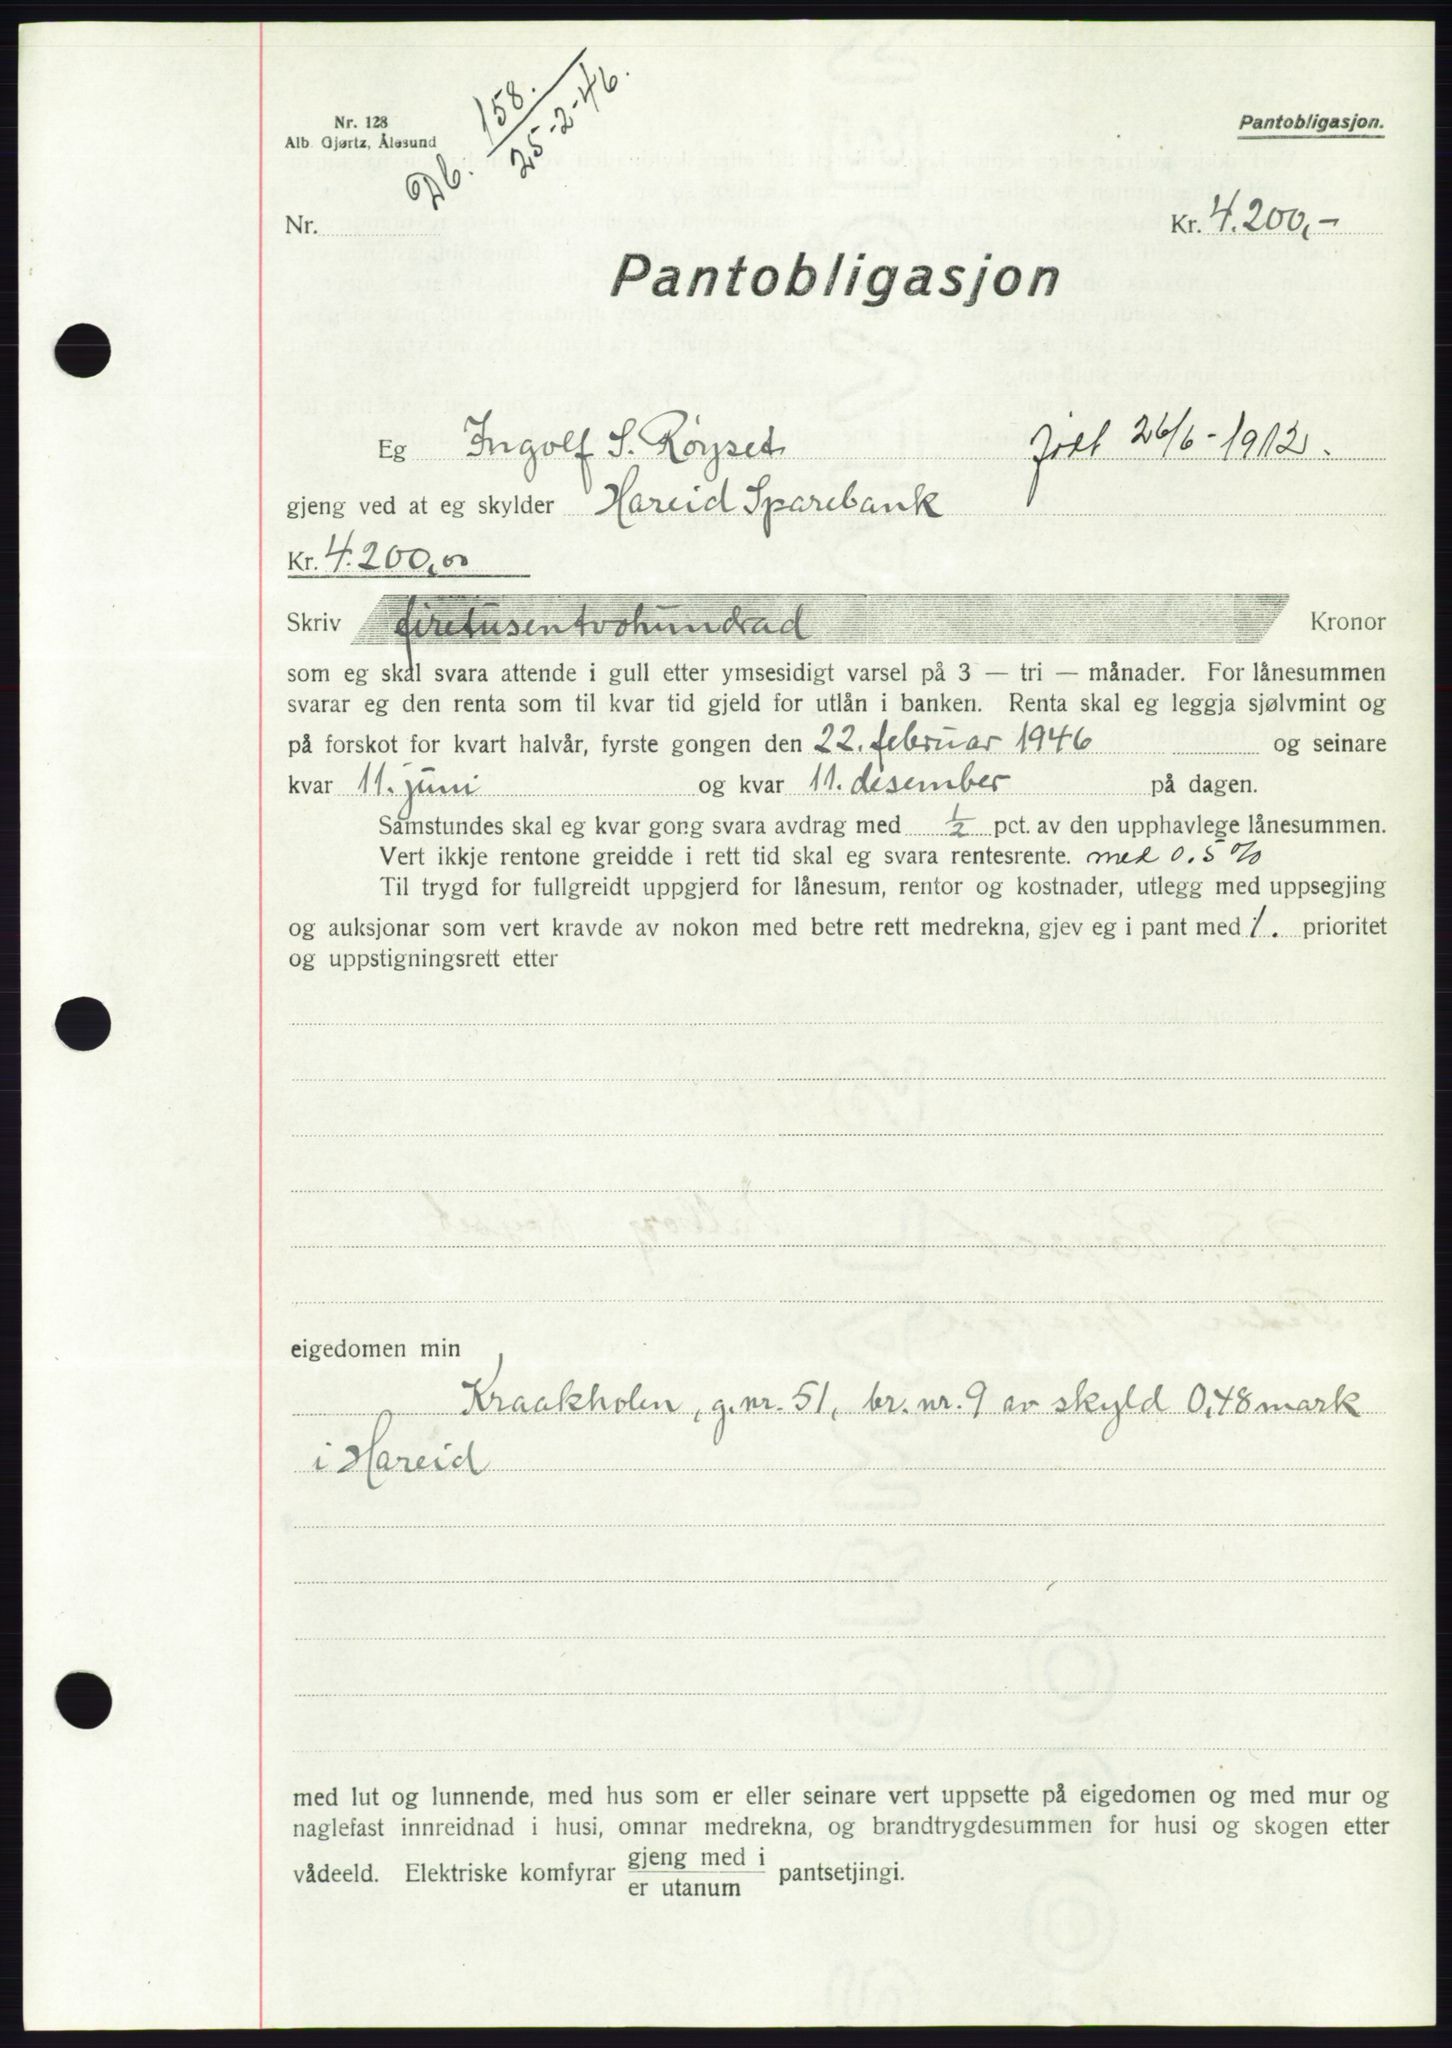 Nr. 128
Alb. Gjørtz, Ålesund
Db. 158.
25-2-46.
Pantobligasjon.
Nr.
Kr. 4.200,-
Pantobligasjon
Eg Ingolf S. Røyset født 26/6-1912.
gjeng ved at eg skylder Hareid Sparebank
Kr. 4.200,00
Skriv firetusentvohundrad Kronor
som eg skal svara attende i gull etter ymsesidigt varsel på 3 — tri — månader. For lånesummen
svarar eg den renta som til kvar tid gjeld for utlån i banken. Renta skal eg leggja sjølvmint og
på forskot for kvart halvår, fyrste gongen den 22. februar 1946 og seinare
kvar 11. juni og kvar 11. desember på dagen.
Samstundes skal eg kvar gong svara avdrag med 1/2 pct. av den upphavlege lånesummen.
Vert ikkje rentone greidde i rett tid skal eg svara rentesrente. med 0.5%
Til trygd for fullgreidt uppgjerd for lånesum, rentor og kostnader, utlegg med uppsegjing
og auksjonar som vert kravde av nokon med betre rett medrekna, gjev eg i pant med 1. prioritet
og uppstigningsrett etter
eigedomen min
Kraakholen, g.nr. 51, br. nr. 9 av skyld 0,48 mark
i Hareid
med lut og lunnende, med hus som er eller seinare vert uppsette på eigedomen og med mur og
naglefast innreidnad i husi, omnar medrekna, og brandtrygdesummen for husi og skogen etter
vådeeld. Elektriske komfyrar gjeng med i pantsetjingi.
er utanum